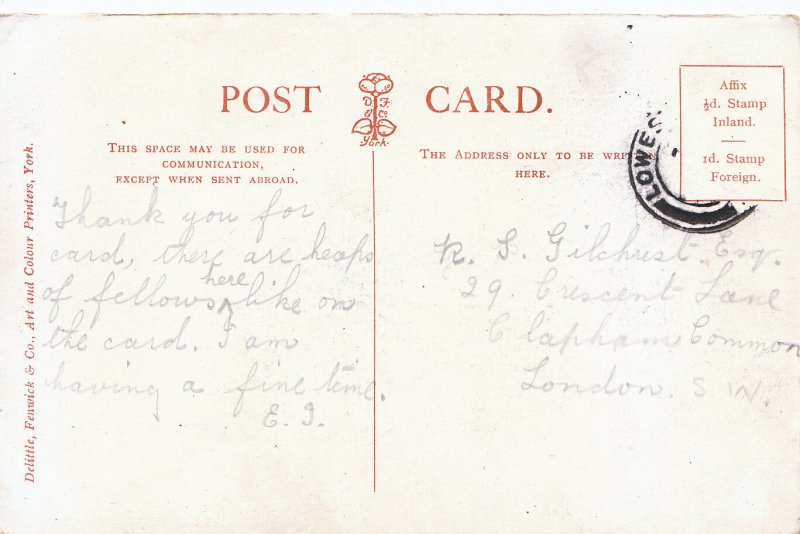 POST CARD.
D F
& Co
York.
THIS SPACE MAY BE USED FOR
COMMUNICATION,
EXCEPT WHEN SENT ABROAD.
THE ADDRESS ONLY TO BE WRITTEN
HERE.
Affix
½d. Stamp
Inland.
1d. Stamp
Foreign.
LOWES
Delittle, Fenwick & Co., Art and Colour Printers, York.
Thank you for
card, there are heaps
of fellows here like on
the card. I am
having a fine time.
E. I.
R. S. Gilchrest. Esq.
29. Crescent Lane
Clapham Common
London. S W.